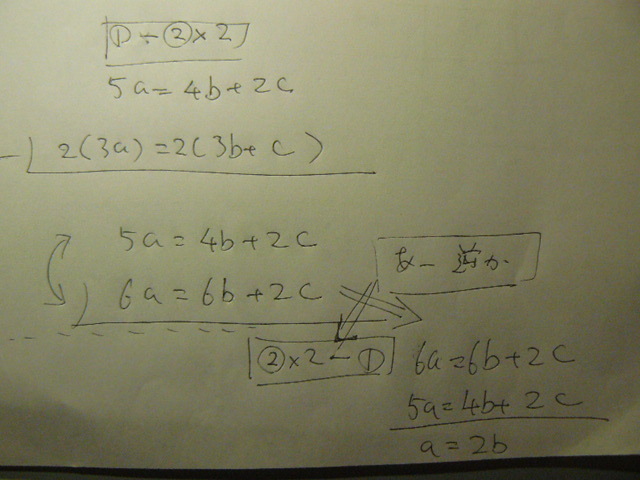 ①-②×2
5a=4b+2c
-) 2(3a)=2(3b+c)
5a=4b+2c
) 6a=6b+2c
あー 逆か
②×2-①
6a=6b+2c
5a=4b+2c
a=2b